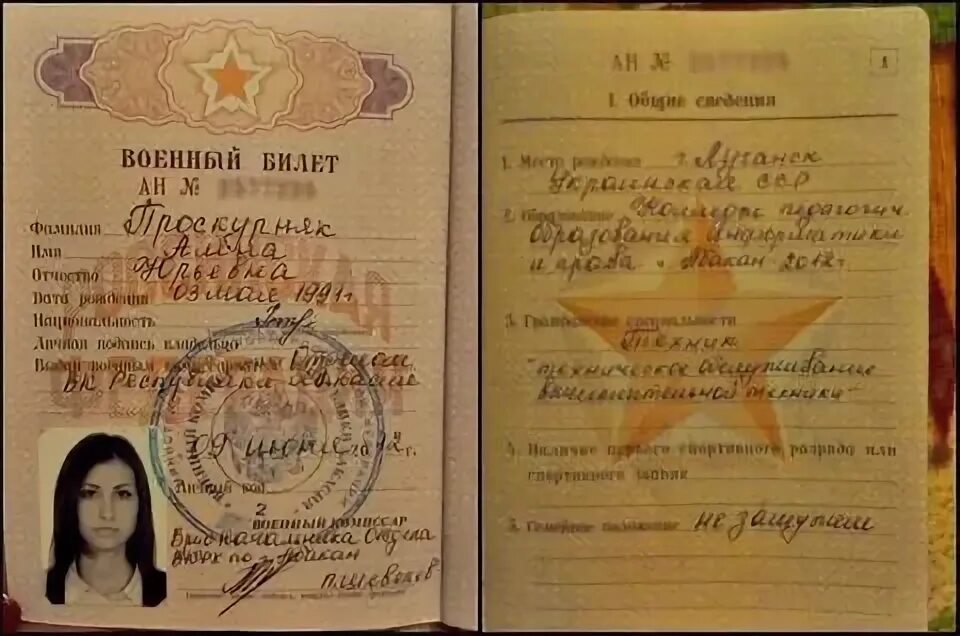 ВОЕННЫЙ БИЛЕТ
АН №
Фамилия Проскурняк
Имя Алёна
Отчество Юрьевна
Дата рождения 03 мая 1991 г.
Национальность
Личная подпись владельца
Выдан военным комиссариатом Отделом
ВК Республики Хакасия
09 июня 2012 г.
2
ВОЕННЫЙ КОМИССАР
Врио начальника Отдела
ВКРХ по г. Абакан
АН № 1
I. Общие сведения
1. Место рождения г. Луганск
Украинская ССР
2. Образование Колледж педагогич.
образования информатики
и права г. Абакан 2012 г.
3. Гражданские специальности
Техник
техническое обслуживание
вычислительной техники
4. Наличие первого спортивного разряда или
спортивного звания
5. Семейное положение не замужем